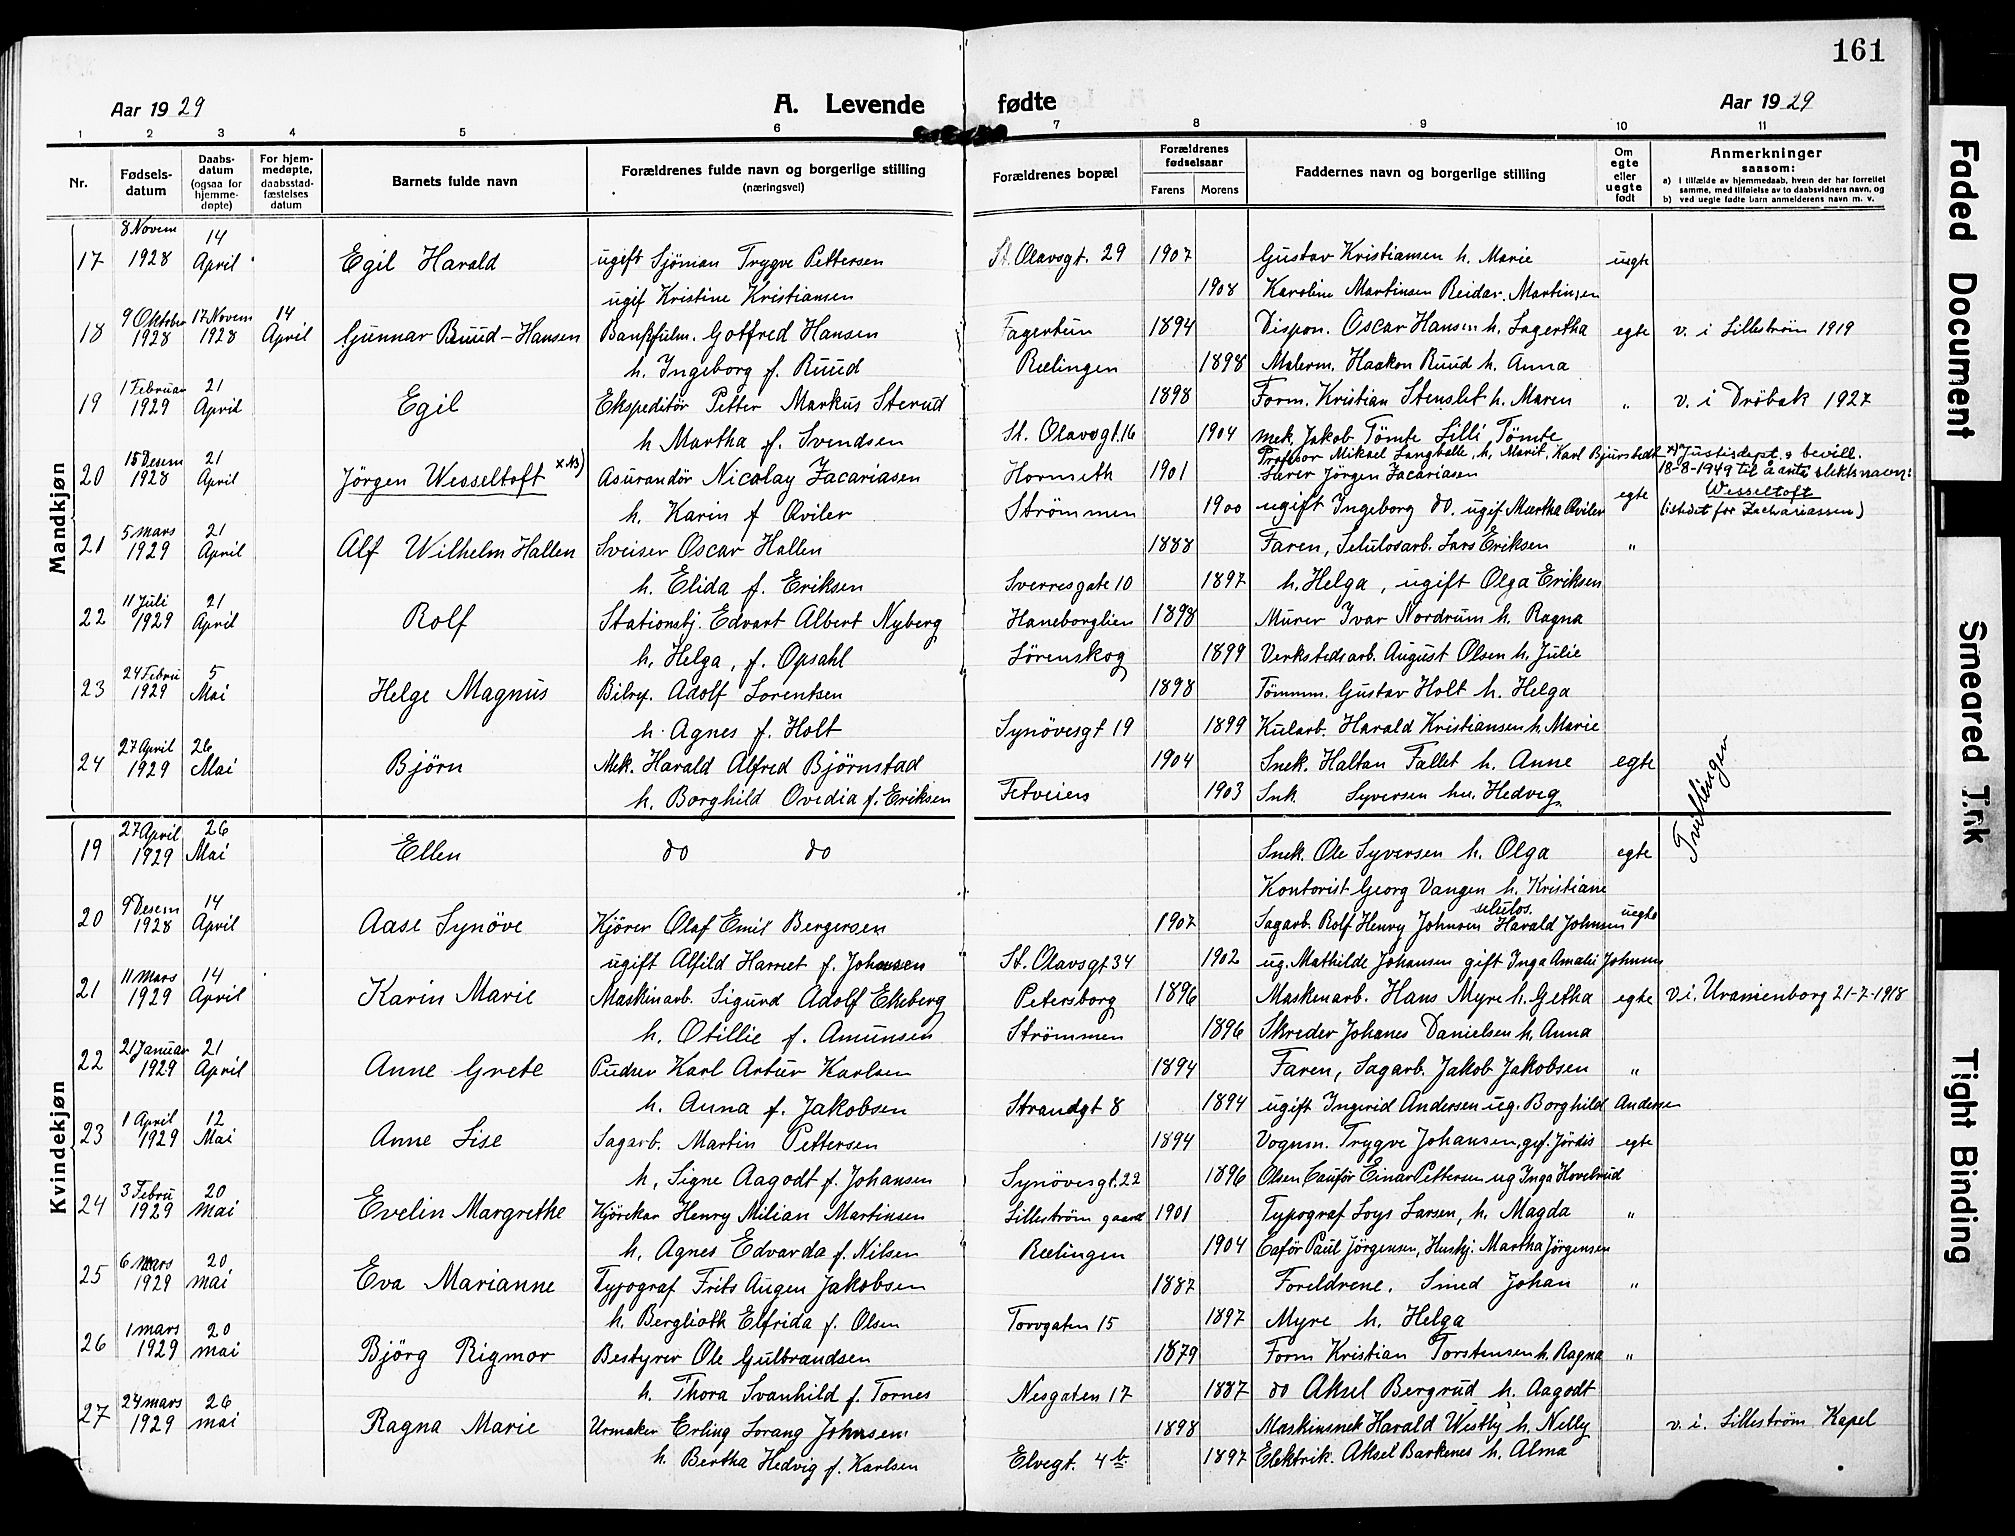 161
Aar 1929 A. Levende fødte Aar 1929
1 2 3 4 5 6 7 8 9 10 11
Nr. Fødsels-datum Daabs-datum (ogsaa for hjemme-døpte) For hjem-medøpte, daabsstad-fæstelses datum Barnets fulde navn Forældrenes fulde navn og borgerlige stilling (næringsvei) Forældrenes bopæl Forældrenes fødselsaar Farens Morens Faddernes navn og borgerlige stilling Om egte eller uegte født Anmerkninger saasom:
a) I tilfælde av hjemmedaab, hvem der har forrettet samme, med tilføielse av to daabsvidners navn, og
b) ved uegte fødte barn anmelderens navn m. v.
Mandkjøn
17 8 Novem 1928 14 April Egil Harald ugift Sjöman Trygve Pettersen St. Olavsgt. 29 1907 Gustav Kristiansen h. Marie uegte
ugif Kristine Kristiansen 1908 Karoline Martinsen Reidar Martinsen
18 9 Oktober 1928 17 Novem 1928 14 April Gunnar Ruud-Hansen Bankfulm. Gotfred Hansen Fagertun 1894 Dispon. Oscar Hansen h. Sagertha egte v. i Lilleström 1919
h. Ingeborg f. Ruud Rælingen 1898 Malerm. Haakon Ruud h. Anna
19 1 Februar 1929 21 April Egil Ekspeditör Petter Markus Sterud 1898 Form. Kristian Stenslet h. Maren " v. i Dröbak 1927
h Martha f. Svendsen St. Olavsgt. 16 1904 Mek. Jakob Tömte Lilli Tömte
20 15 Desem 1928 21 April Jörgen Wesseltoft x AB) Asurandör Nicolay Zacariasen Horneth 1901 Profesor Mikael Langballe h. Marit. Karl Bjurstedt Lærer Jörgen Zacariasen x) Justisdept.s bevill. 18-8-1949 til å anta slektsnavn:
h. Karin f Qviler Strömmen 1900 ugift Ingeborg do. ugif Martha Qviler egte Wesseltoft (istedet for Zachariassen)
21 5 mars 1929 21 April Alf Wilhelm Hallen Sveiser Oscar Hallen 1888 Faren, Selulosarb. Lars Eriksen "
h. Elida f. Eriksen Sverresgate 10 1897 h. Helga, ugift Olga Eriksen
22 11 Juli 1929 21 April Rolf Stationsbj. Edvart Albert Nyberg Haneborglien 1898 Murer Ivar Nordrum h. Ragna
h. Helga, f. Opsahl Lörenskog 1899 Verkstedsarb. August Olsen h. Julie
23 24 Febru 1929 5 Mai Helge Magnus Bilrep. Adolf Lorentsen 1898 Tömmm. Gustav Holt h. Helga
h. Agnes f. Holt Synövesgt 19 1899 Kularb. Harald Kristiansen h. Marie
24 27 April 1929 26 Mai Björn Mek. Harald Alfred Björnstad 1904 Snek. Haltan Fallet h. Anne egte Tvillinger
h. Borghild Ovedia f. Eriksen Fetveiers 1903 Snk. Syversen hu. Hedvig
Kvindekjøn
19 27 April 1929 26 Mai Ellen do do Snek. Ole Syversen h. Olga egte
Kontorist Georg Vangen h. Kristiane
20 9 Desem 1928 14 April Aase Synöve Kjörer Olaf Emil Bergersen 1907 Sagarb. Rolf Henry Johnsen selulos. Harald Johnsen uegte
ugift Alfild Harriet f. Johansen St. Olavsgt 34 1902 ug. Mathilde Johansen gift Inga Amalie Johnsen
21 11 Mars 1929 14 April Karin Marie Maskinarb. Sigurd Adolf Ekeberg Petersborg 1896 Maskenarb. Hans Myre h. Getha egte v i. Uranienborg 21-7-1918
h. Otillie f. Amunsen Strömmen 1896 Skreder Johanes Danielsen h. Anna
22 21 Januar 1929 21 April Anne Grete Pudser Karl Artur Karlsen 1894 Faren, Sagarb. Jakob Jakobsen "
h. Anna f. Jakobsen Strandgt 8 1894 ugift Ingerid Andersen ug. Borghild Andersen
23 1 April 1929 12 Mai Anne Lise Sagarb. Martin Pettersen 1894 Vognm. Trygve Johansen, gif. Jördis egte
h, Signe Aagodt f. Johansen Synövesgt. 22 1896 Olsen Cauför Einar Pettersen ug Inga Hovelsrud
24 3 Febru 1929 20 Mai Evelin Margrethe Kjörekar Henry Milian Martinsen Lilleström gaard 1901 Typograf Loys Larsen, h. Magda "
h, Agnes Edvarda f. Nilsen Rælingen 1904 Caför Paul Jörgensen, Husbj. Martha Jörgensen
25 6 Mars 1929 20 mai Eva Marianne Typograf Frits Augen Jakobsen 1887 Foreldrene. Smed Johan "
h. Bergliotk Elfrida f. Olsen Torvgaten 15 1897 Myre h. Helga
26 1 mars 1929 20 mai Björg Rigmor Bestyrer Ole Gulbrandsen 1879 Form Kristian Torstensen h. Ragna "
h. Thora Svanhild f. Tornes Nesgaten 17 1887 do Aksel Bergrud h. Aagodt
27 24 mars 1929 26 mai Ragna Marie Urmaker Erling Sorang Johnsen 1898 Maskinsnek Harald Westby h. Nelly v. i. Lilleström Kapel
h. Bertha Hedvig f. Karlsen Elvegt. 4 b 1897 Elektrik. Aksel Barkenes h. Alma
Faded Document
Smeared Ink
Tight Binding